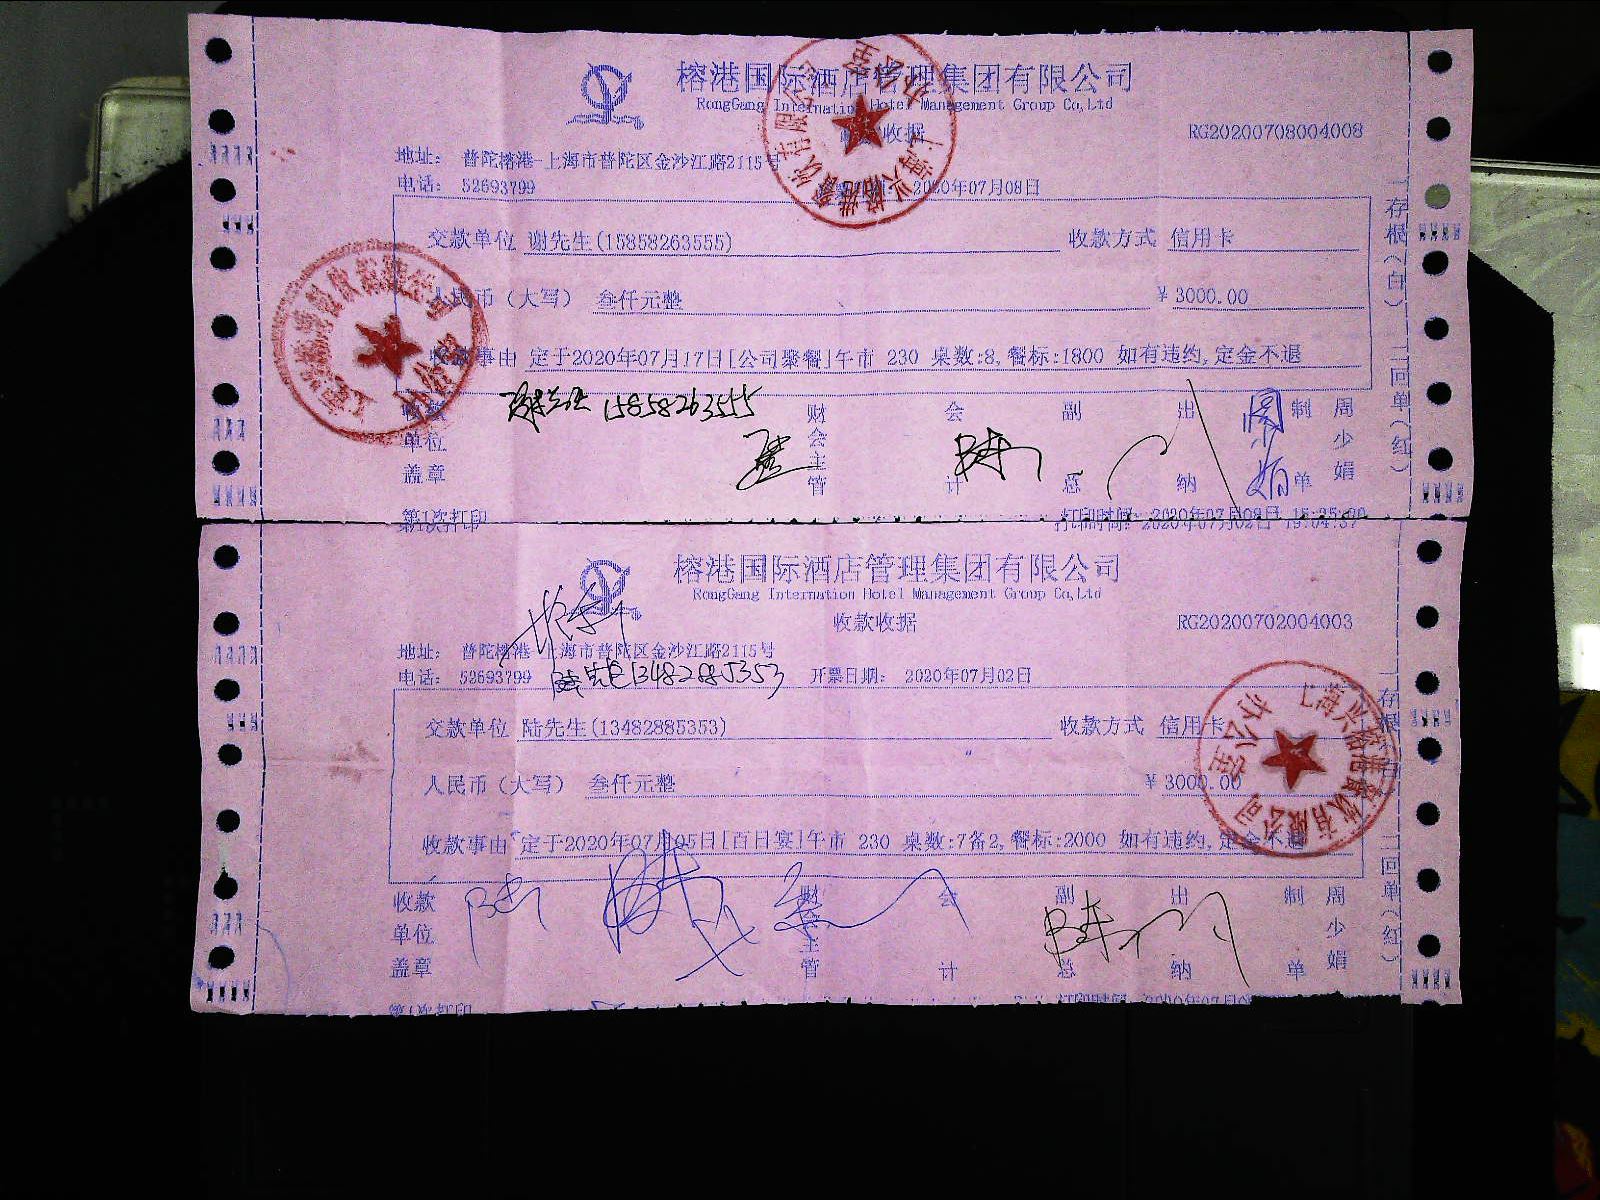 榕港国际酒店管理集团有限公司
RongGang Internation Hotel Management Group Co,Ltd
收据
RG20200708004008
地址: 普陀榕港-上海市普陀区金沙江路2115号
电话: 52693799 2020年07月08日
交款单位 谢先生(15858263555) 收款方式 信用卡
人民币（大写） 叁仟元整 ¥ 3000.00
收款事由 定于2020年07月17日[公司聚餐]午市 230 桌数:8,餐标:1800 如有违约,定金不退
15858263555
收款单位盖章 财会主管 会计 副总 出纳 制单 周少娟
周少娟
第1次打印 打印时间:
存根(白) 二回单(红)
榕港国际酒店管理集团有限公司
RongGang Internation Hotel Management Group Co,Ltd
收款收据
RG20200702004003
地址: 普陀榕港 上海市普陀区金沙江路2115号
电话: 52693799 13482885353 开票日期: 2020年07月02日
交款单位 陆先生(13482885353) 收款方式 信用卡
人民币（大写） 叁仟元整 ¥ 3000.00
收款事由 定于2020年07月05日[百日宴]午市 230 桌数:7备2,餐标:2000 如有违约,定金不退
收款单位盖章 财会主管 会计 副总 出纳 制单 周少娟
第1次打印 打印时间
存根 二回单(红)
上海兴榕港餐饮有限公司
办公室